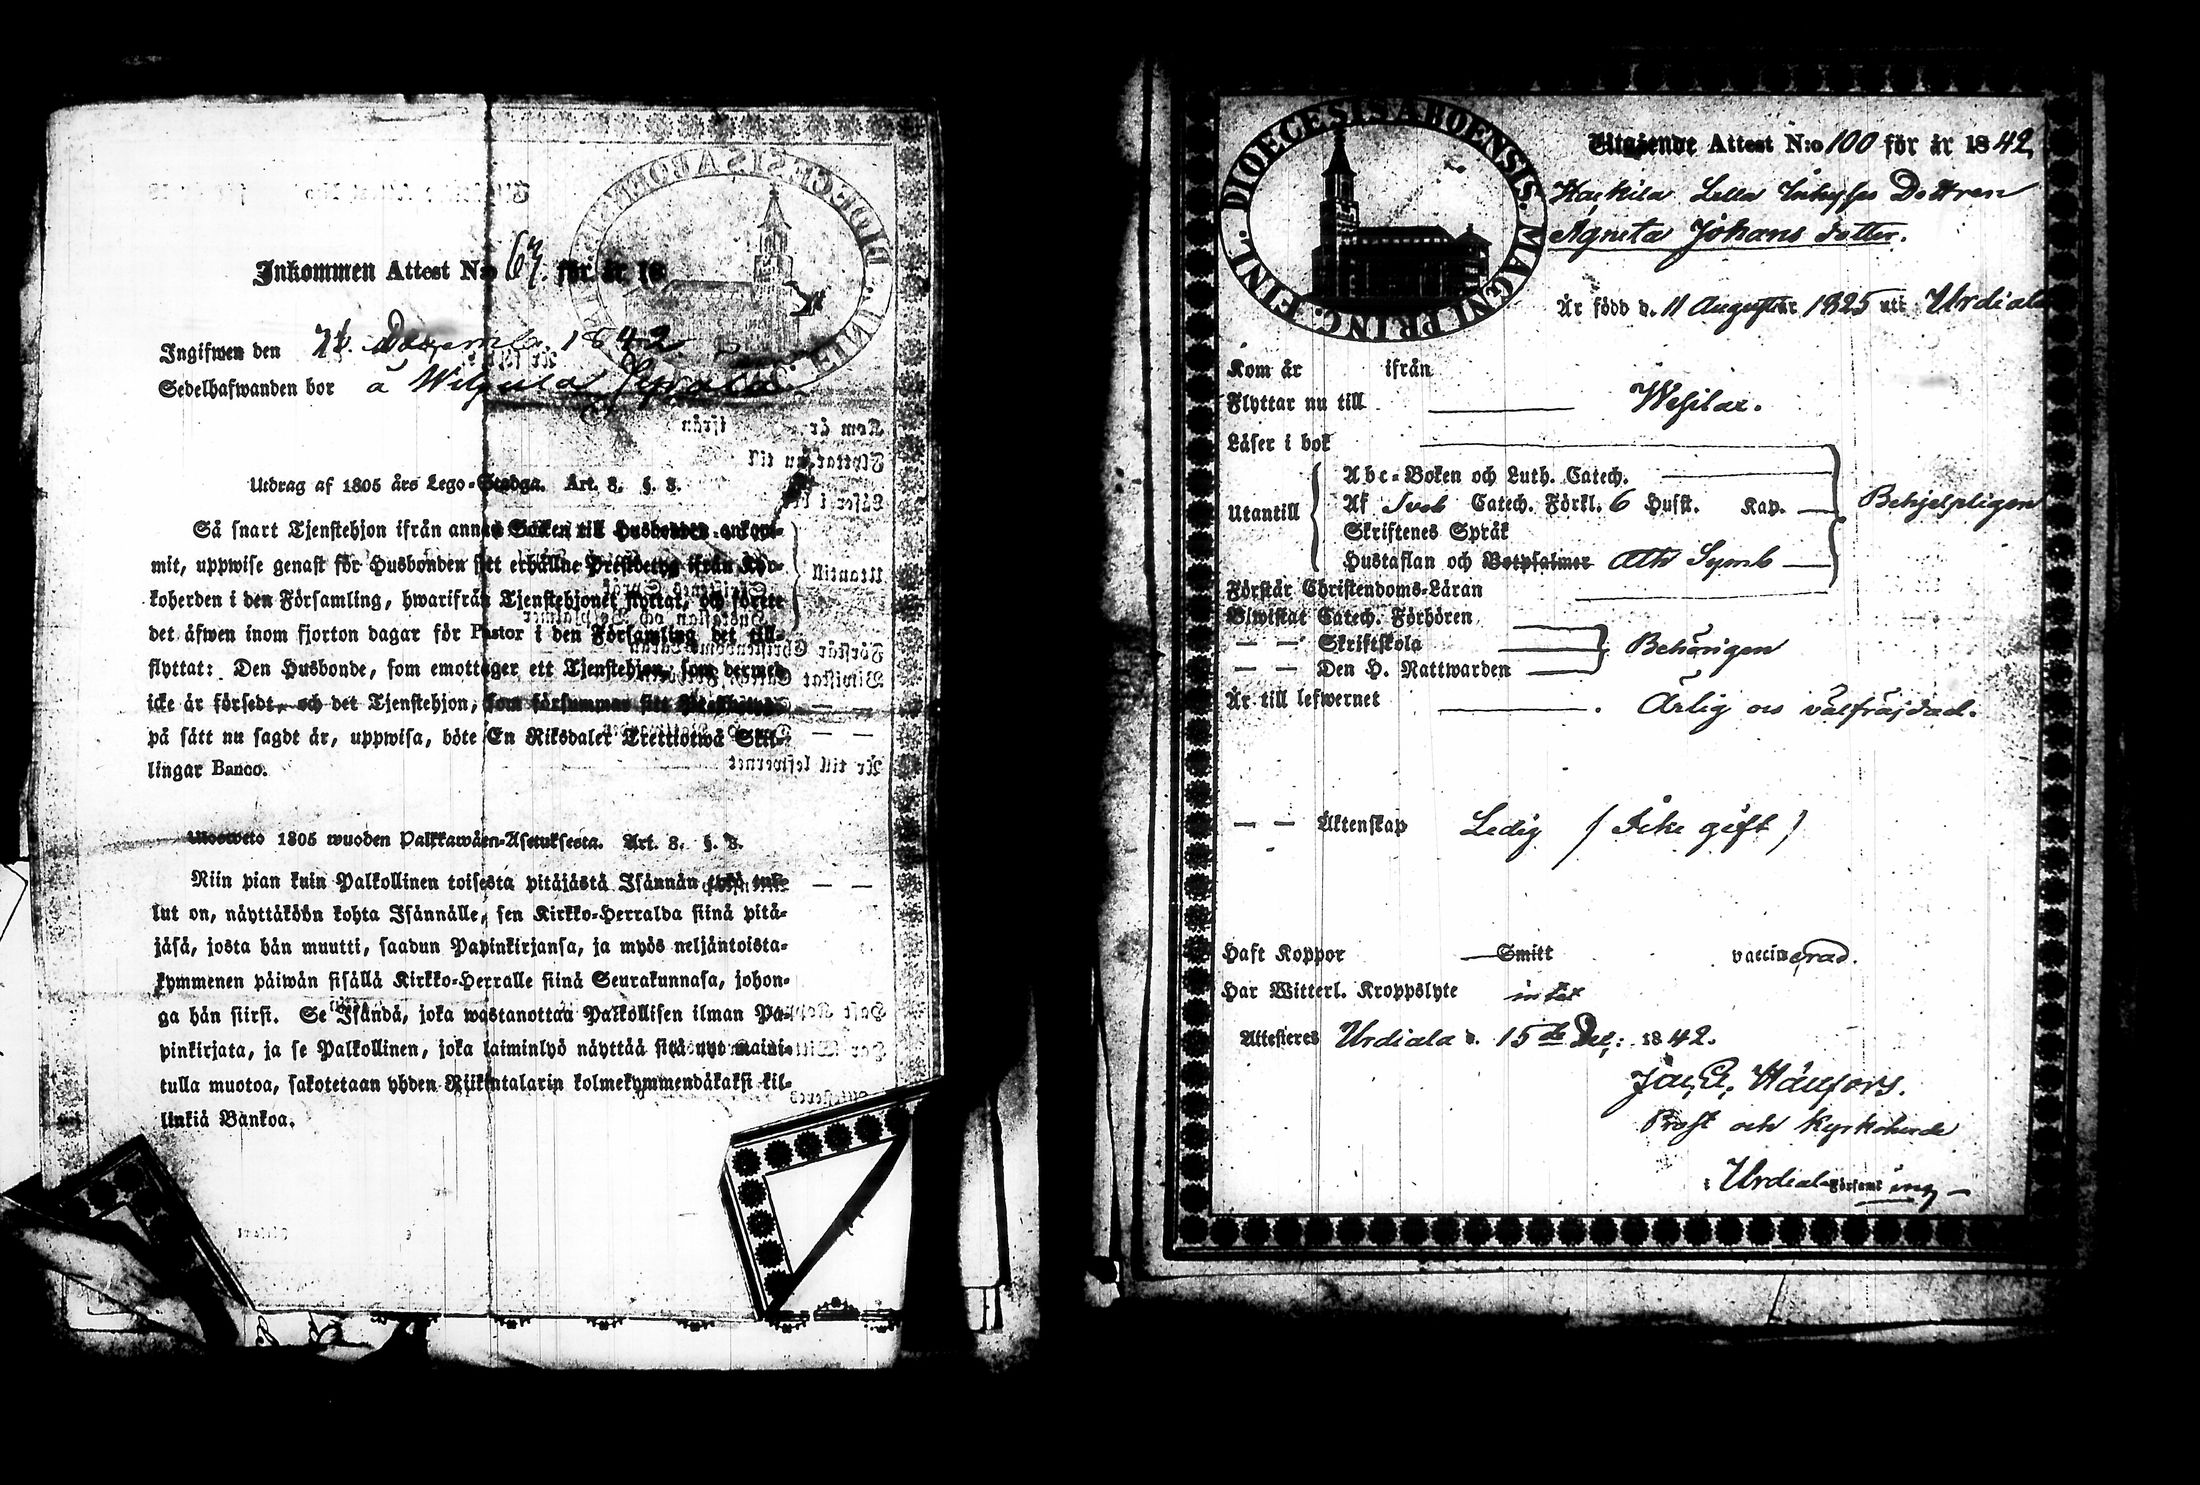 Inkommen Attest N:o 67. för år 18
Ingifwen den 21. Decemb. 1842
Sedelhafwanden bor å
Utdrag af 1805 års Lego-Stadga. Art. 8. §. 8.
Så snart Tjenstehjon ifrån annan Socken till Husbonden ankom-
mit, uppwise genast för Husbonden sitt erhållne Prestbetyg ifrån Kyr-
koherden i den Församling, hwarifrån Tjenstehjonet flyttat, och förete
det äfwen inom fjorton dagar för Pastor i den Församling det till-
flyttat: Den Husbonde, som emottager ett Tjenstehjon, som dermed
icke är försedt, och det Tjenstehjon, som försummar sitt
på sätt nu sagdt är, uppwisa, böte En Riksdaler Trettiotwå Skil-
lingar Banco.
Ulosweto 1805 wuoden Palkkawäen-Asetuksesta. Art. 8. §. 8.
Niin pian kuin Palkollinen toisesta pitäjästä Isännän tykö tul-
lut on, näyttäköön kohta Isännälle, sen Kirkko-Herralda siinä pitä-
jäsä, josta hän muutti, saadun Papinkirjansa, ja myös neljäntoista-
kymmenen päiwän sisällä Kirkko-Herralle siinä Seurakunnasa, johon-
ga hän siirsi. Se Isändä, joka wastanottaa Palkollisen ilman Pa-
pinkirjata, ja se Palkollinen, joka laiminlyö näyttää sitä nyt maini-
tulla muotoa, sakotetaan yhden Riikintalarin kolmekymmendäkaksi kil-
linkiä Bankoa.
DIOECESIS ABOENSIS. MAGNI PRINC. FINL.
Utgående Attest N:o 100 för år 1842,
Dottren
Agneta Johans dotter.
Är född d. 11 Augusti år 1825 uti Urdiala
Kom år ifrån
Flyttar nu till Wesilax.
Läser i bok
Utantill
Abc-Boken och Luth. Catech.
Af Sveb Catech. Förkl. 6 Hufst. Kap. Behjelpligen
Skriftenes Språk
Hustaflan och Botpsalmer Ath Symb
Förstår Christendoms-Läran
Biwistat Catech. Förhören
— — Skriftskola Behörigen
— — Den H. Nattwarden
Är till lefwernet Ärlig oc välfräjdad.
— — Äktenskap Ledig (Icke gift)
Haft Koppor Smitt vaccinerad.
Har Witterl. Kroppslyte intet
Attesteres Urdiala d. 15de Dec: 1842.
Prost och Kyrkoherde
i Urdiala Församling